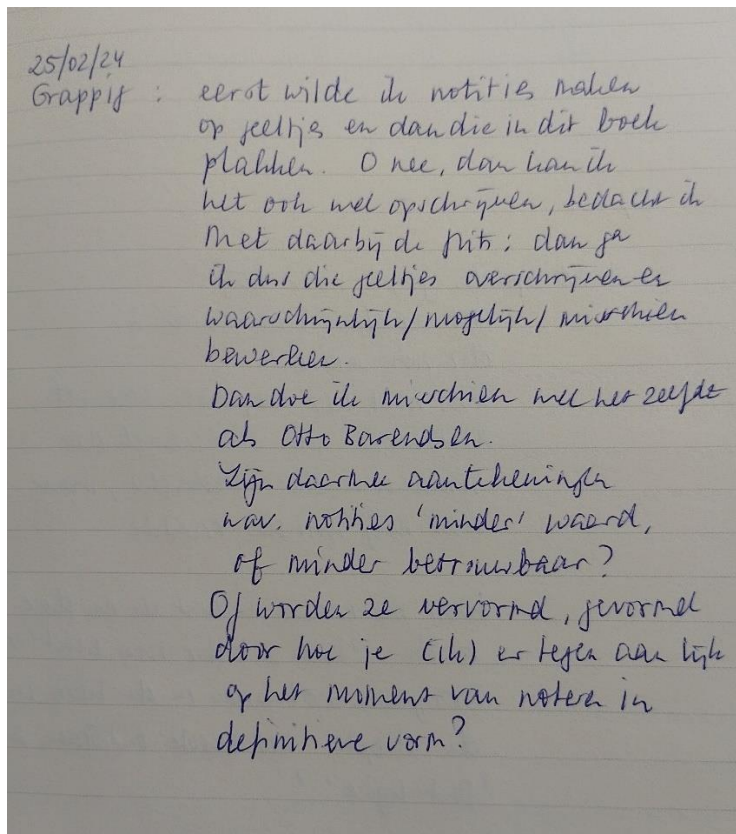 25/02/24
Grappig : eerst wilde ik notities maken
op geeltjes en dan die in dit boek
plakken. O nee, dan kan ik
het ook wel opschrijven, bedacht ik
met daarbij de : dan ga
ik dus die geeltjes overschrijven en
waarschijnlijk/mogelijk/misschien
bewerken.
Dan doe ik misschien wel het zelfde
als Otto Barendsen.
Zijn daarmee aantekeningen
nav. notities 'minder' waard,
of minder betrouwbaar?
Of worden ze vervormd, gevormd
door hoe je (ik) er tegen aan kijk
op het moment van noteren in
definitieve vorm?